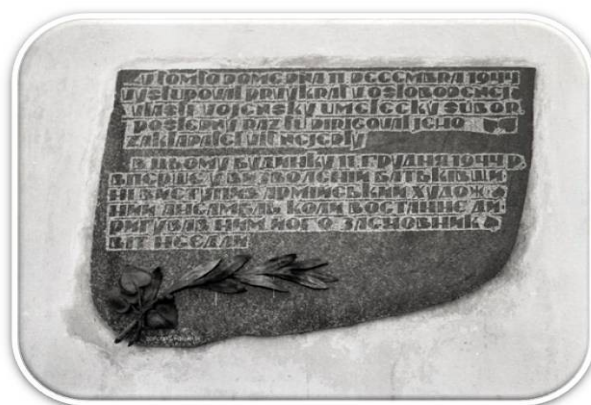 V TOMTO DOME DŇA 11 DECEMBRA 1944
VYSTUPOVAL PRVÝ KRÁT V OSLOBODENEJ
VLASTI VOJENSKÝ UMELECKÝ SÚBOR
POSLEDNÝ RAZ TU DIRIGOVAL JEHO
ZAKLADATEL VÍT NEJEDLÝ
В ЦЬОМУ БУДИНКУ 11 ГРУДНЯ 1944 Р.
ВПЕРШЕ У ВИЗВОЛЕНІЙ БАТЬКІВЩИ
НІ ВИСТУПИВ АРМІЙСЬКИЙ ХУДОЖ
НИЙ АНСАМБЛЬ КОЛИ ВОСТАННЄ ДИ
РИГУВАВ НИМ ЙОГО ЗАСНОВНИК
ВІТ НЕЄДЛИ